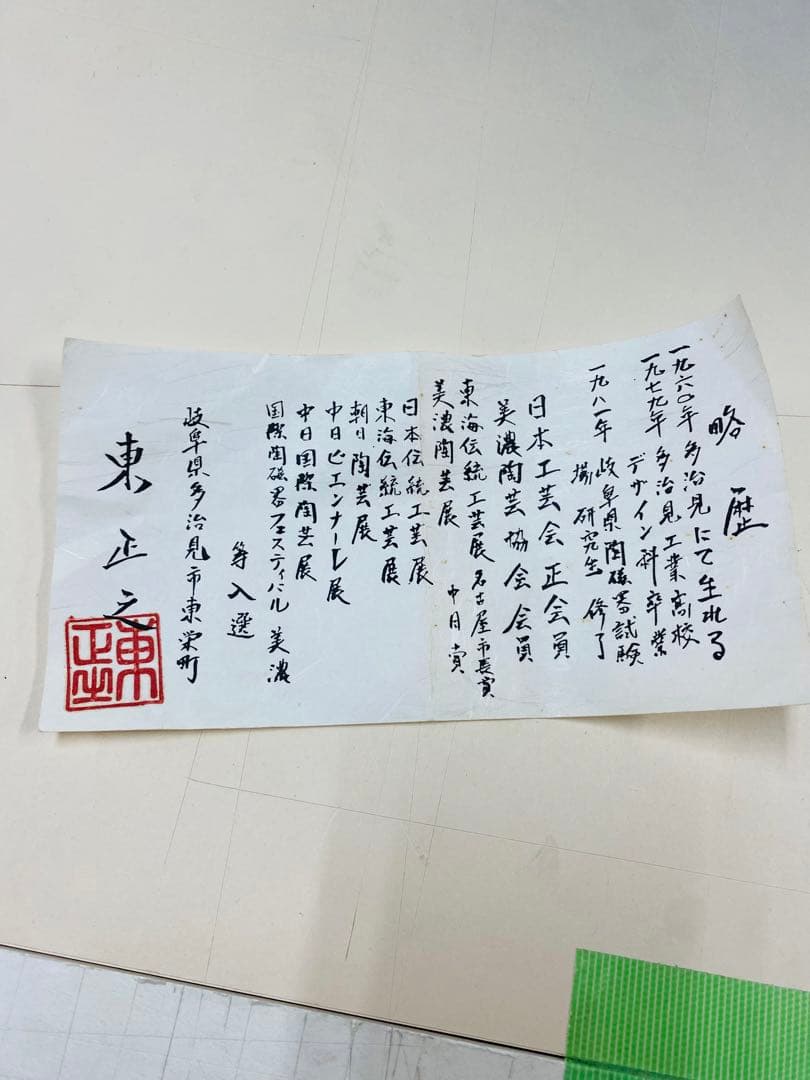 略歴
一九六〇年 多治見にて生れる
一九七九年 多治見工業高校
デザイン科卒業
一九八一年 岐阜県陶磁器試験
場研究生 修了
日本工芸会正会員
美濃陶芸協会会員
東海伝統工芸展 名古屋市長賞
美濃陶芸展 中日賞
日本伝統工芸展
東海伝統工芸展
朝日陶芸展
中日ビエンナーレ展
中日国際陶芸展
国際陶磁器フェスティバル 美濃
等入選
岐阜県多治見市東栄町
東正之